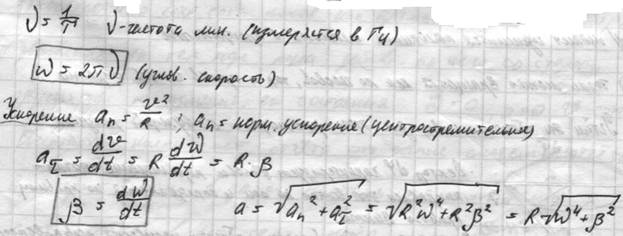 ν = 1/T   ν-частота лин. (измеряется в Гц)
ω = 2πν (углов. скорость)
Ускорение aₙ = v²/R ; aₙ = норм. ускорение (центростремительное)
a_τ = dv/dt = R dω/dt = R·β
β = dω/dt   a = √(aₙ² + a_τ²) = √(R²ω⁴ + R²β²) = R√(ω⁴ + β²)